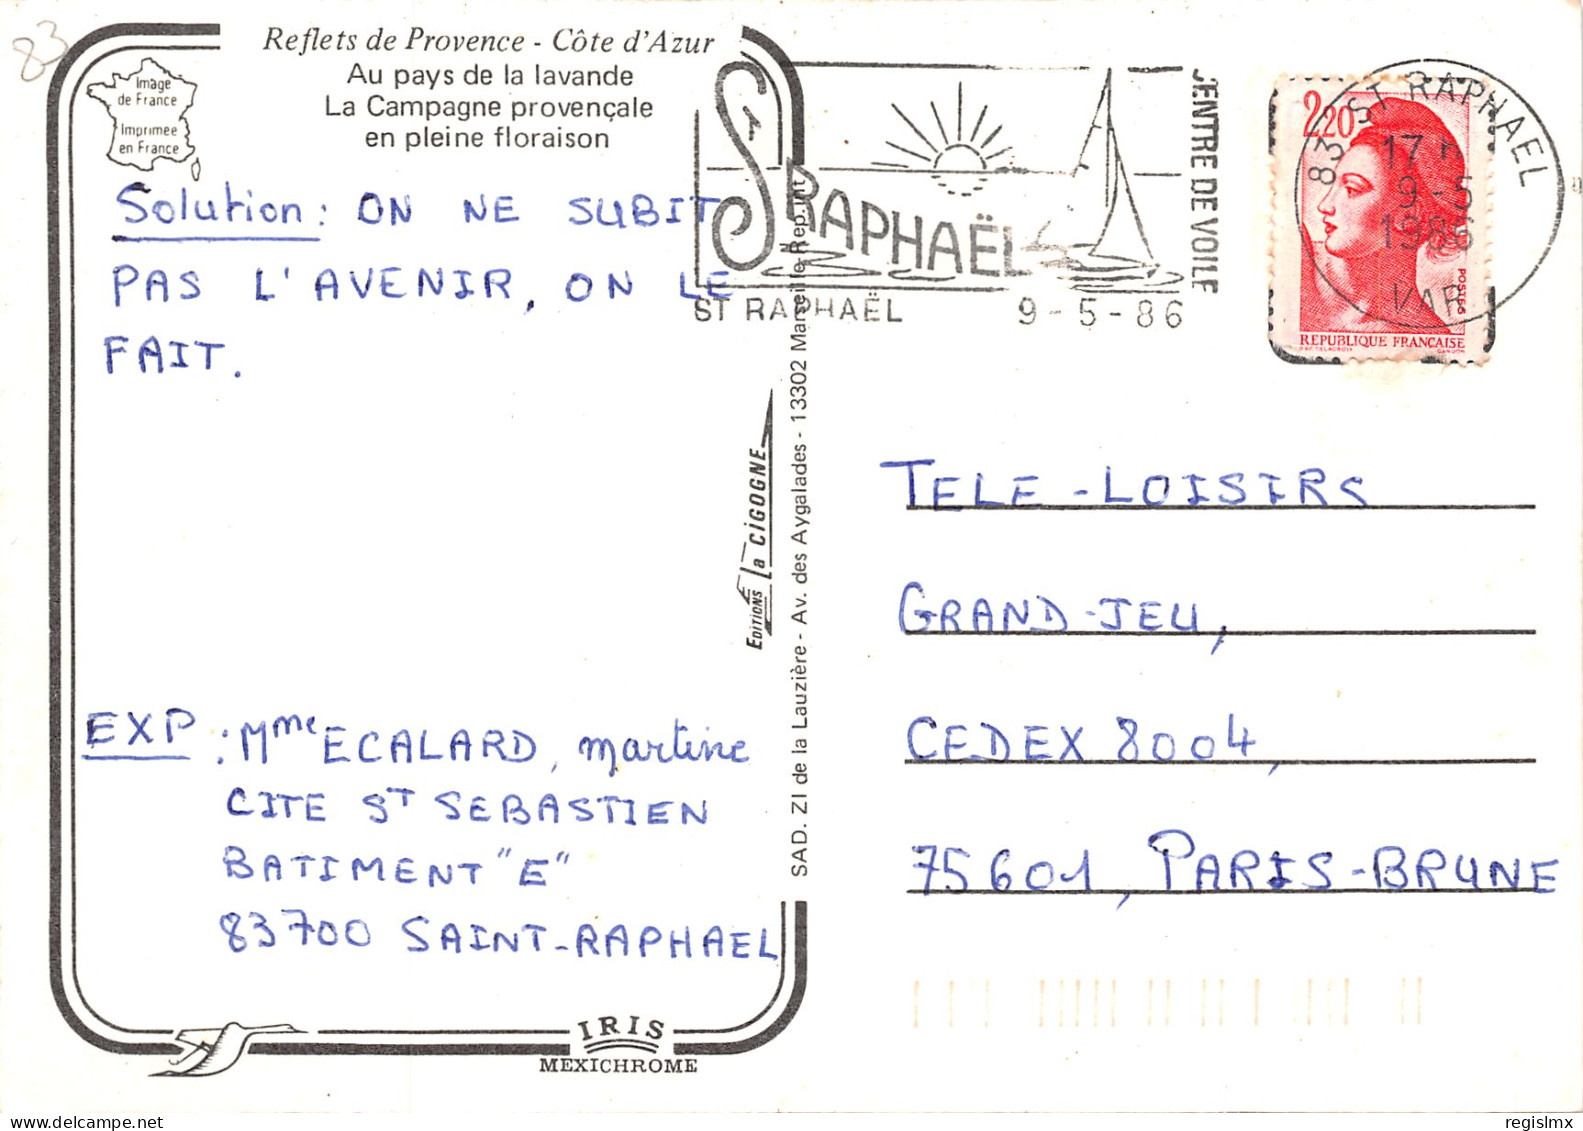 83
Reflets de Provence - Côte d'Azur
Au pays de la lavande
La Campagne provençale
en pleine floraison
Image
de France
Imprimée
en France
Solution : ON NE SUBIT
PAS L'AVENIR, ON LE
FAIT.
EXP : Mme ECALARD, martine
CITE ST SEBASTIEN
BATIMENT "E"
83700 SAINT-RAPHAEL
IRIS
MEXICHROME
EDITIONS La CIGOGNE
SAD. ZI de la Lauzière - Av. des Aygalades - 13302 Marseille Rep. int
ST RAPHAËL
CENTRE DE VOILE
ST RAPHAËL 9-5-86
83 ST RAPHAEL
17 H
9-5
1986
VAR
2,20
POSTES
REPUBLIQUE FRANÇAISE
D'AP. DELACROIX GANDON
TELE-LOISIRS
GRAND-JEU,
CEDEX 8004,
75601, PARIS-BRUNE
regislmx